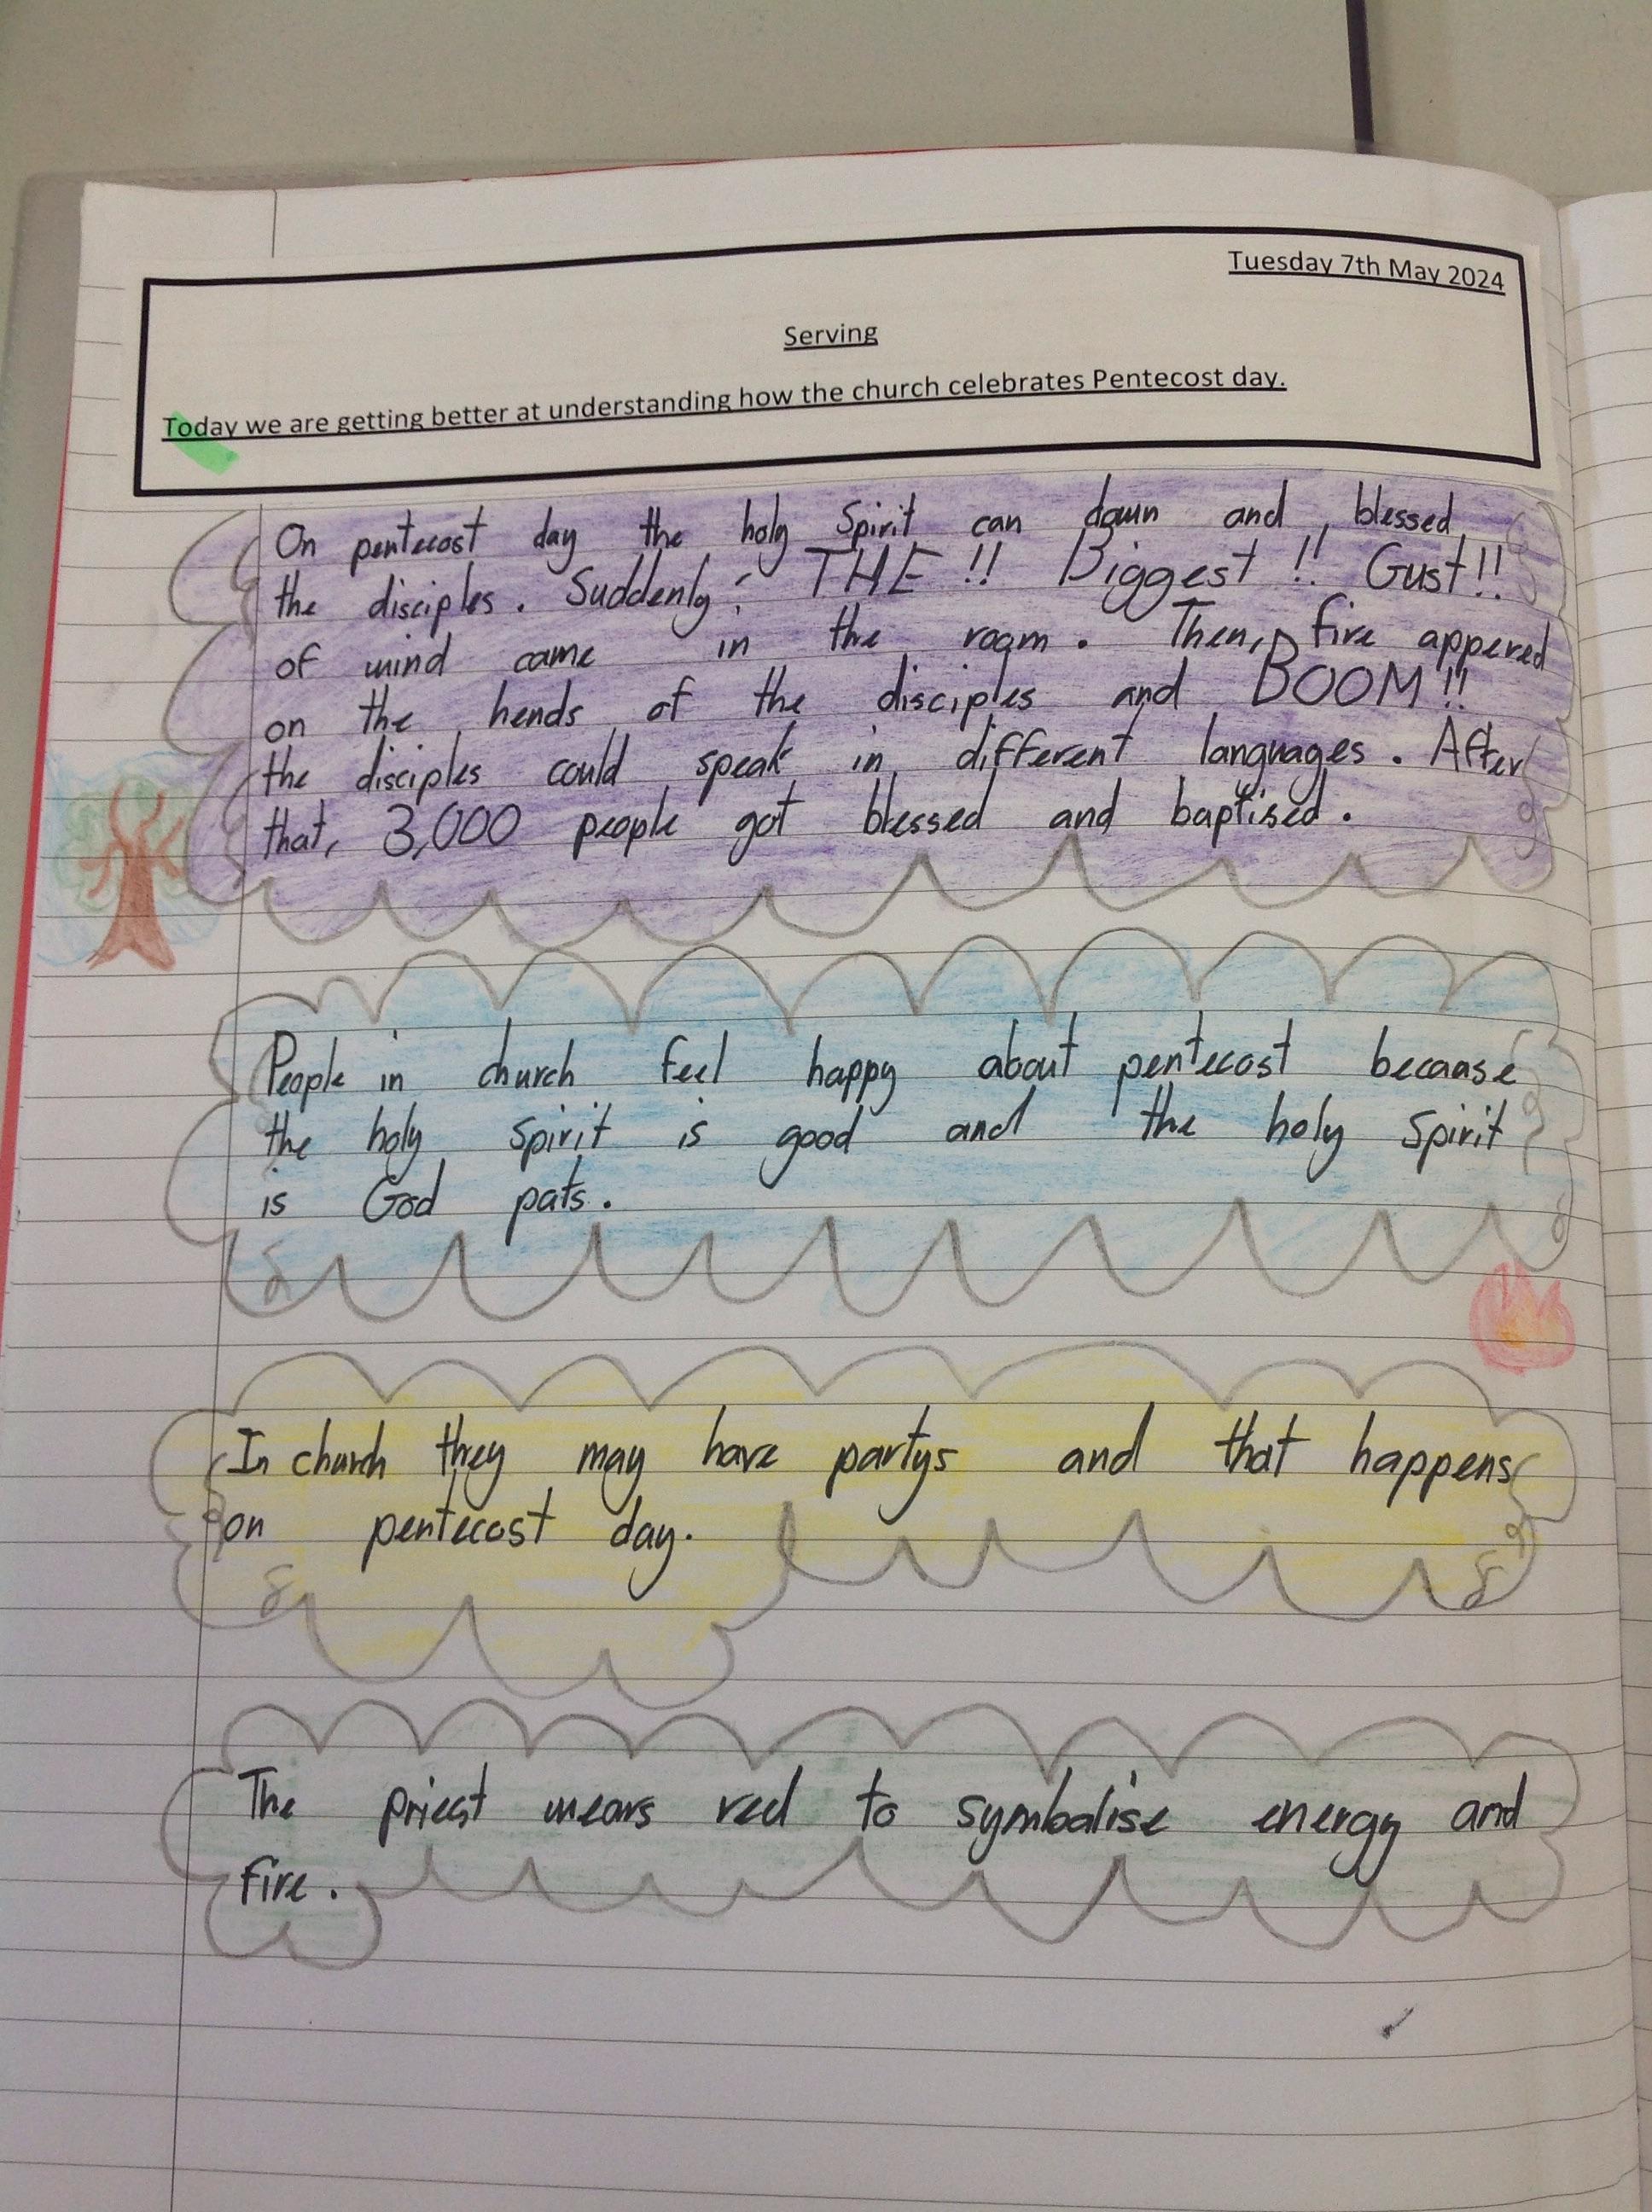 Tuesday 7th May 2024
Serving
Today we are getting better at understanding how the church celebrates Pentecost day.
On pentecost day the holy Spirit can down and blessed
the disciples. Suddenly, THE !! Biggest !! Gust!!
of wind came in the room. Then, fire appered
on the hends of the disciples and BOOM!!
the disciples could speak in different languages. After
that, 3,000 people got blessed and baptised.
People in church feel happy about pentecost because
the holy spirit is good and the holy Spirit
is God pats.
In church they may have partys and that happens
on pentecost day.
The priest wears red to symbalise energy and
fire.